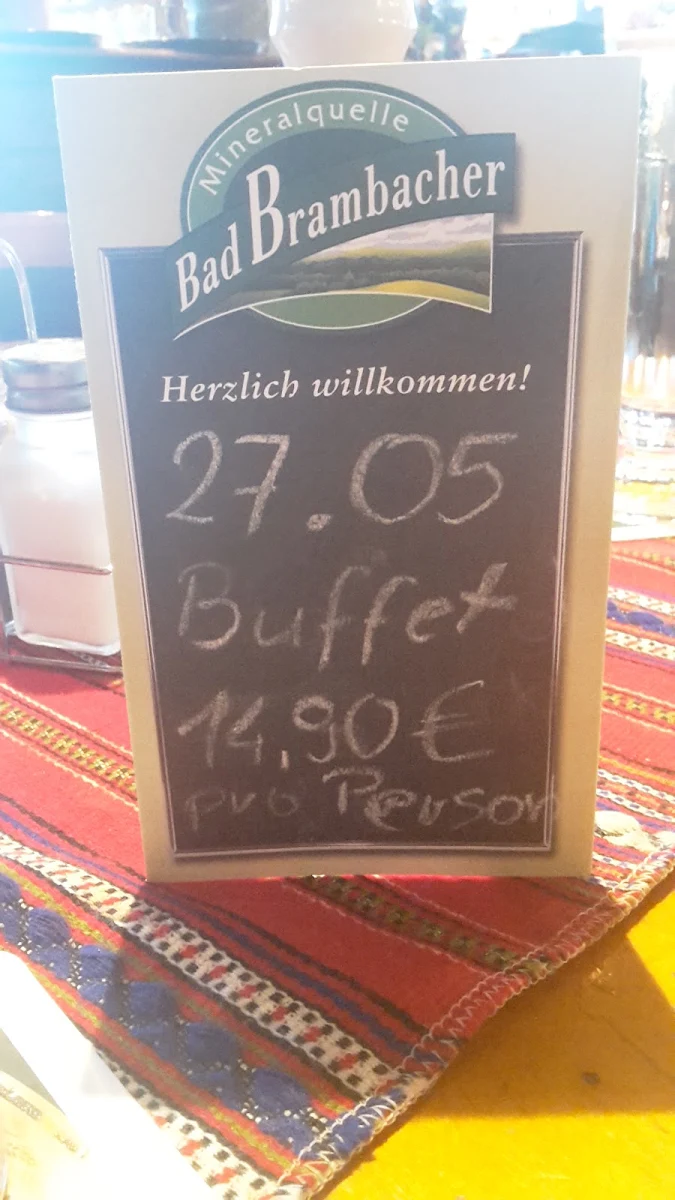 Mineralquelle
Bad Brambacher
Herzlich willkommen!
27.05
Buffet
14,90 €
pro Person